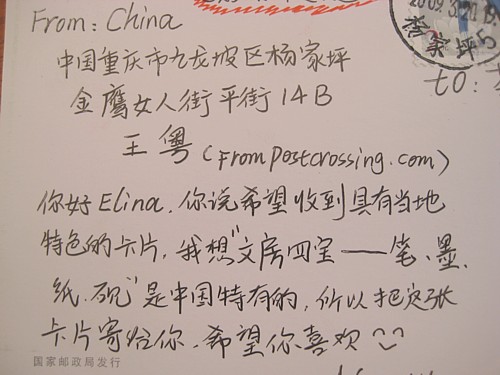 From: China
中国重庆市九龙坡区杨家坪
金鹰女人街平街14B
王粤(From postcrossing.com)
to:
杨家坪5
你好Elina,你说希望收到具有当地
特色的卡片,我想"文房四宝——笔、墨、
纸、砚"是中国特有的,所以把这张
卡片寄给你,希望你喜欢
国家邮政局发行